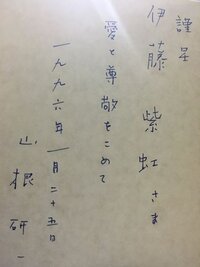 謹呈
伊藤紫虹さま
愛と尊敬をこめて
一九九六年一月二十五日
山根研一